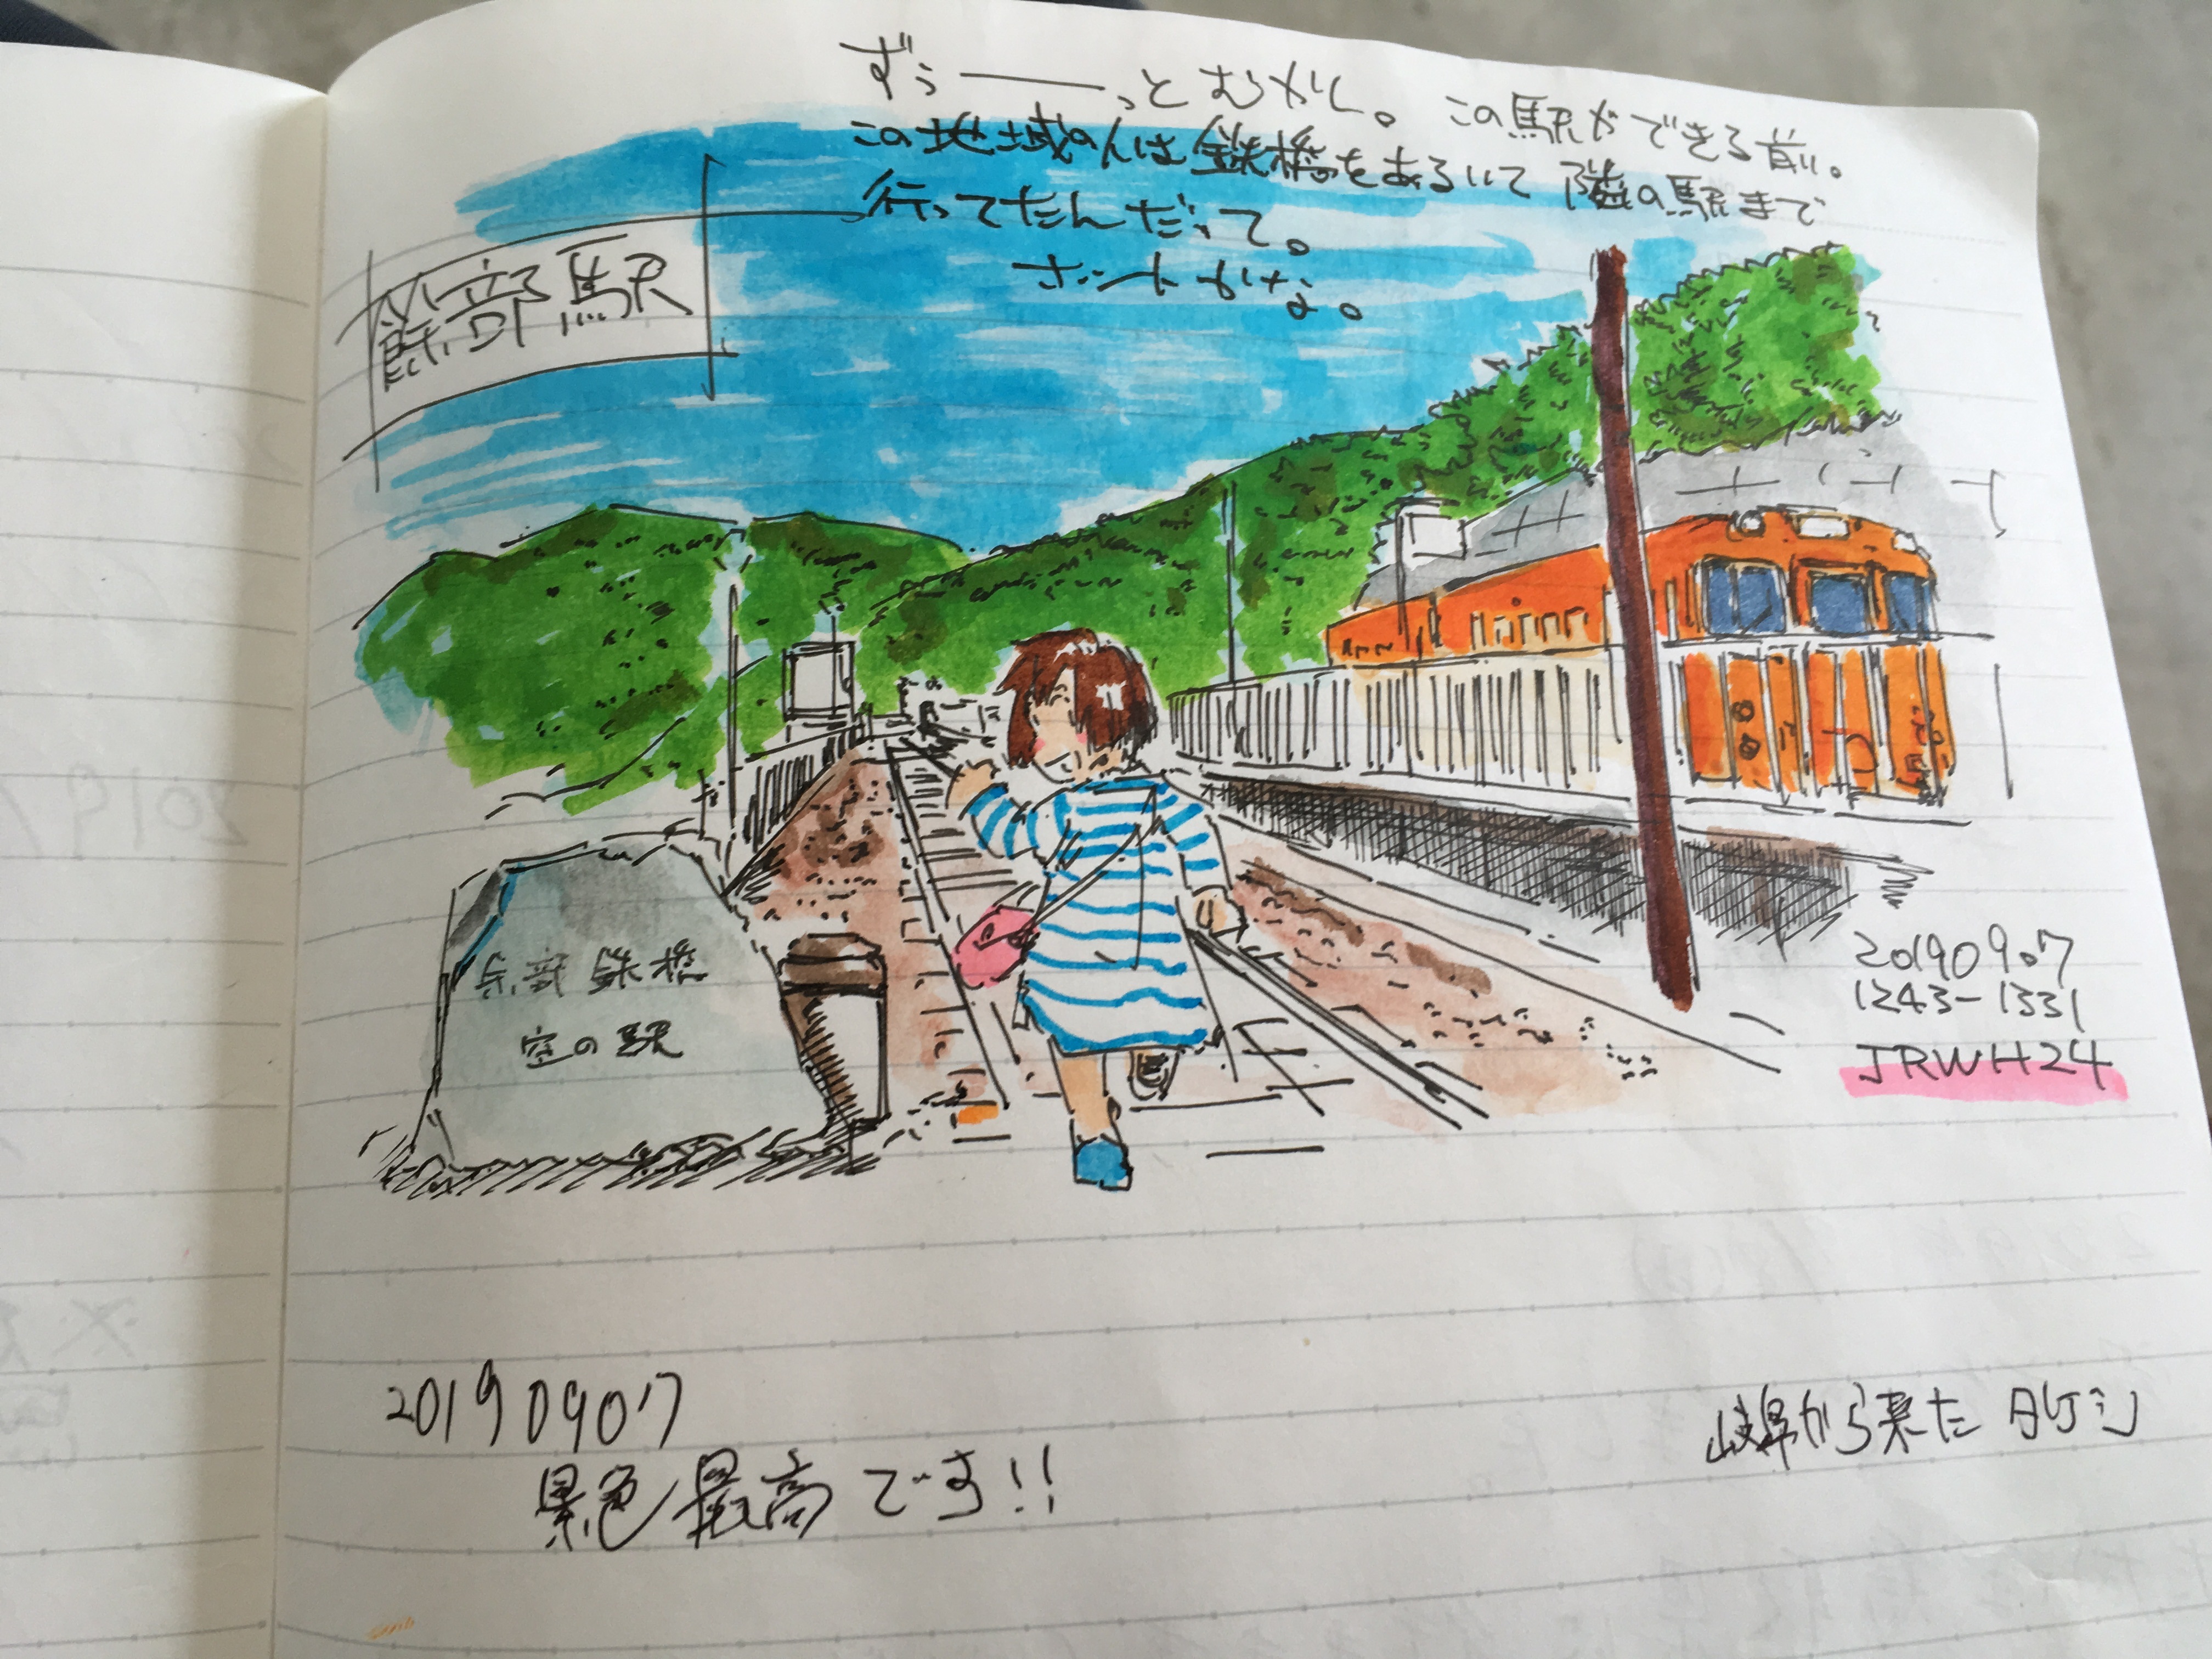 ずぅーーっとむかし。この駅ができる前。
この地域の人は鉄橋をあるいて隣の駅まで
行ってたんだって。
ホントかな。
餘部駅
余部鉄橋
空の駅
20190907
1243-1331
JRWH24
20190907
景色最高です!!
岐阜から来た
2019/